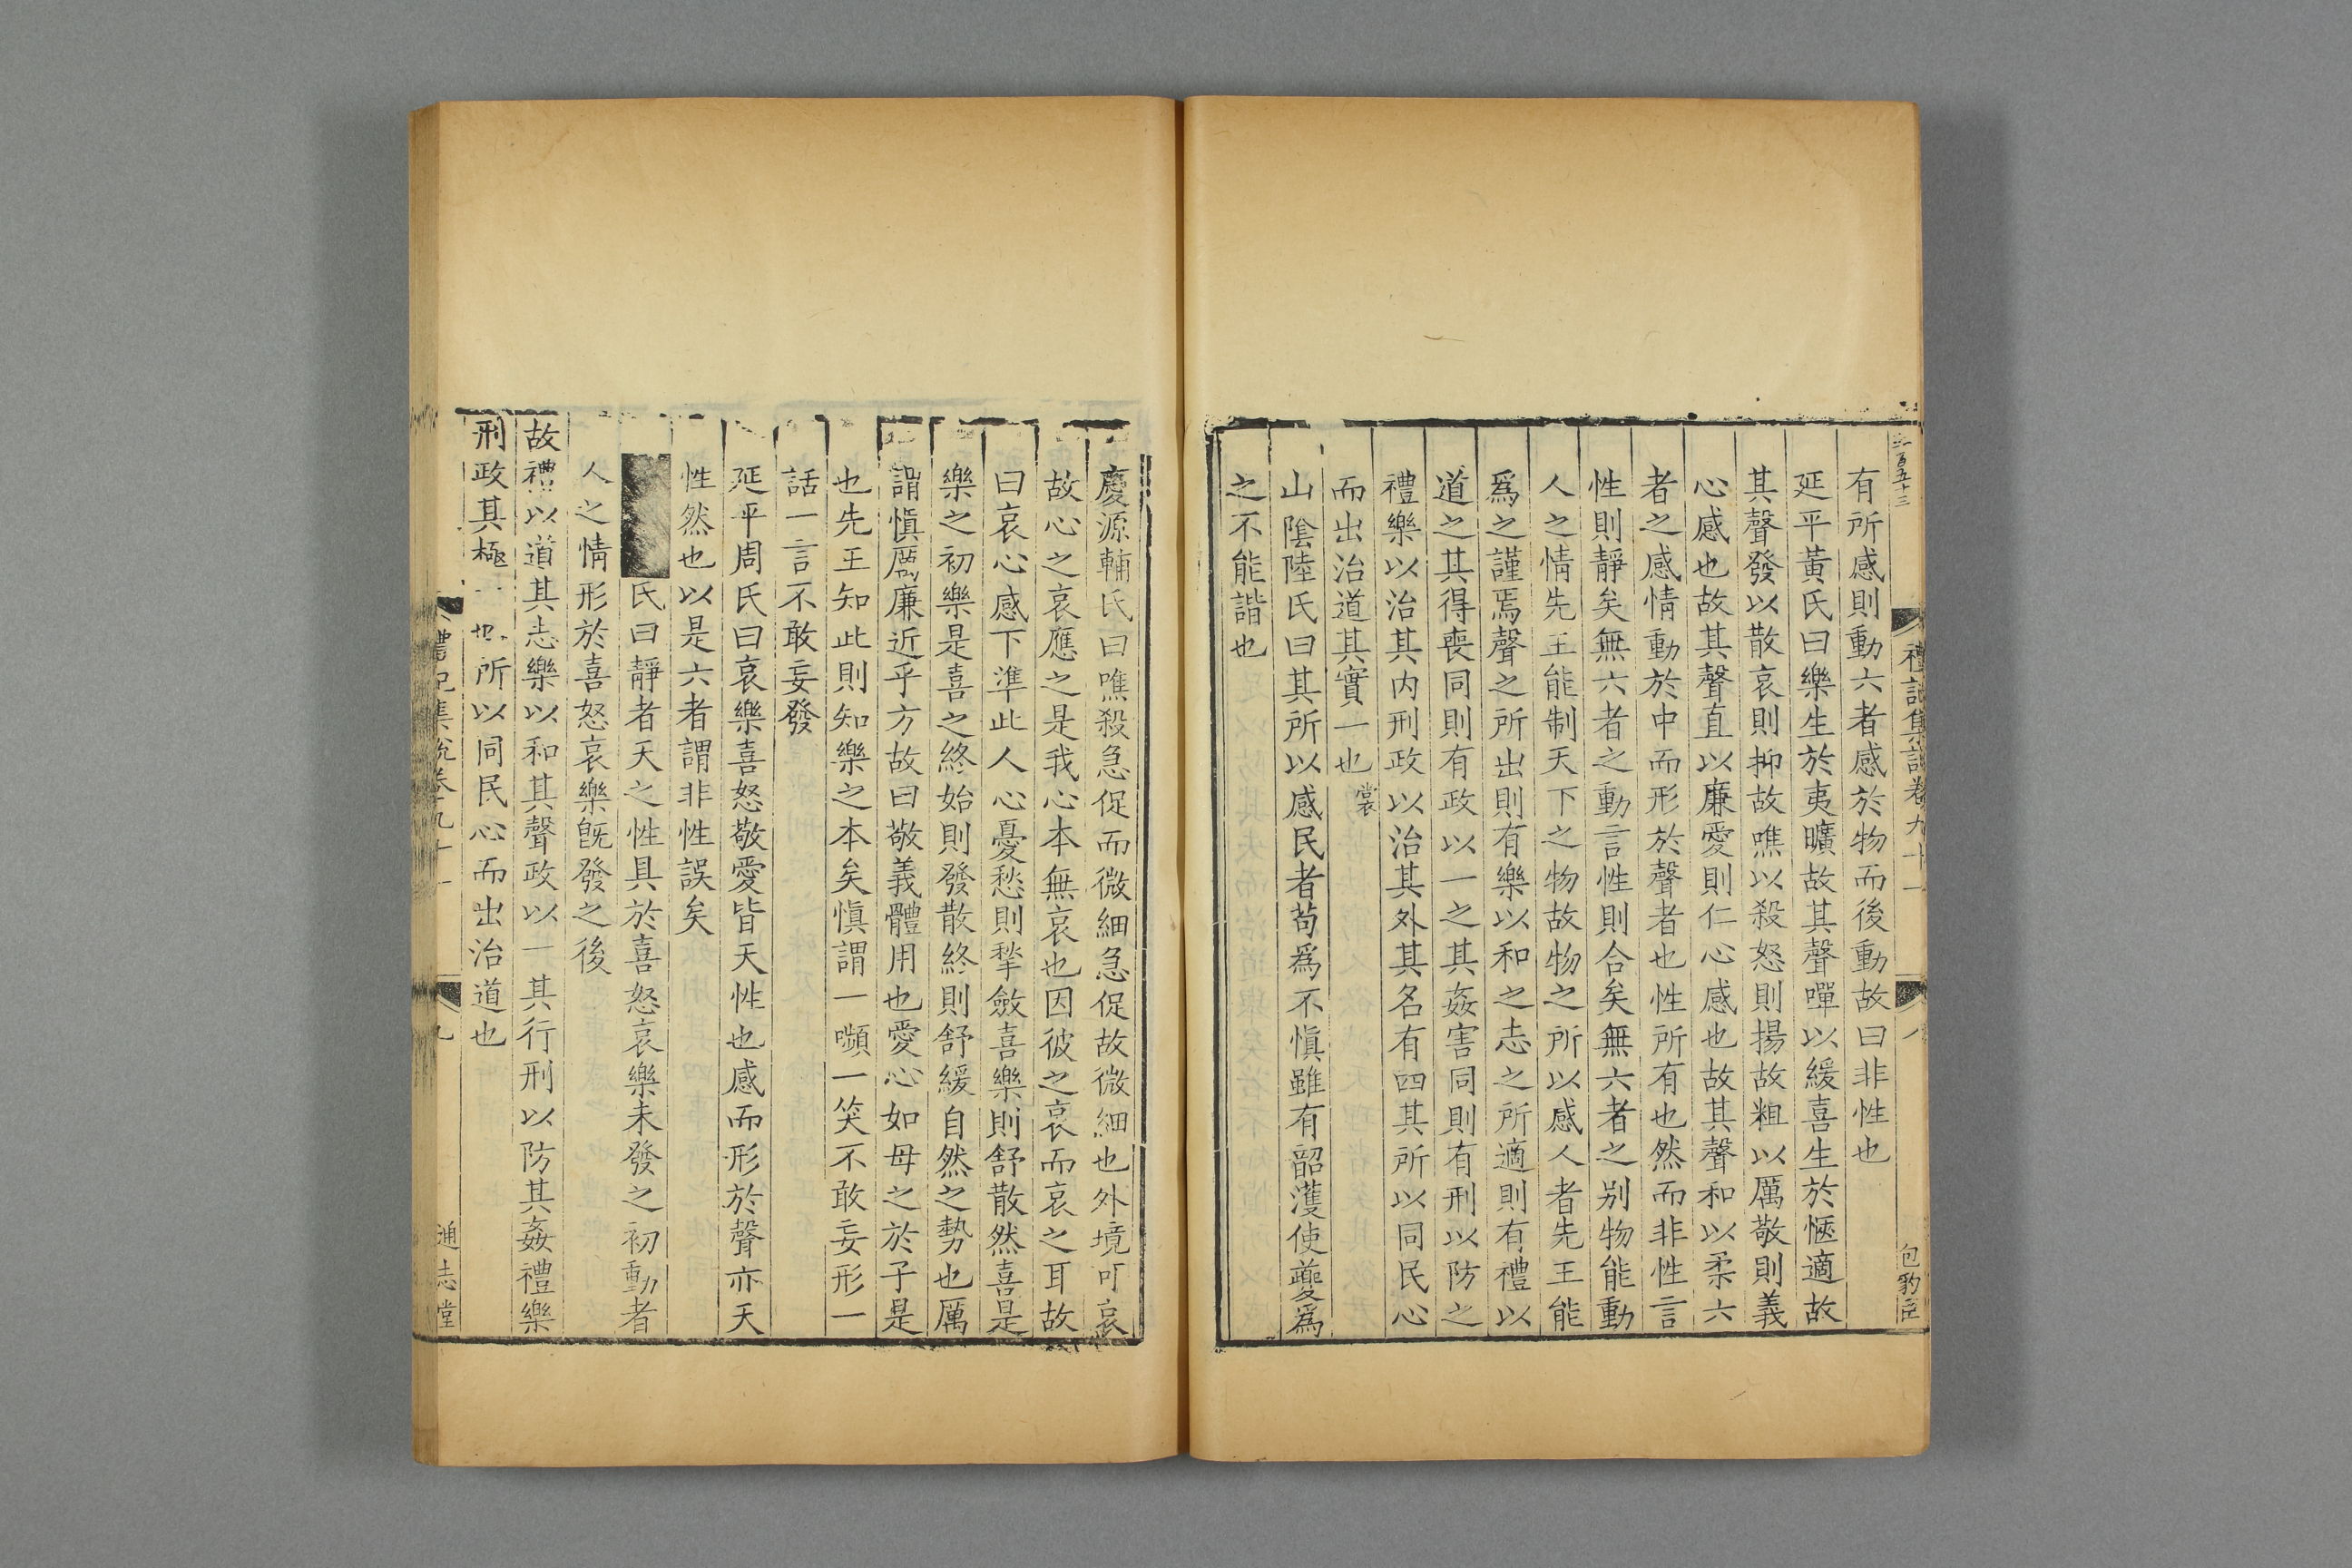 有所感則動六者感於物而後動故曰非性也
延平黃氏曰樂生於夷曠故其聲嘽以緩喜生於愜適故
其聲發以散哀則抑故噍以殺怒則揚故粗以厲敬則義
心感也故其聲直以廉愛則仁心感也故其聲和以柔六
者之感情動於中而形於聲者也性所有也然而非性言
性則靜矣無六者之動言性則合矣無六者之别物能動
人之情先王能制天下之物故物之所以感人者先王能
爲之謹焉聲之所出則有樂以和之志之所適則有禮以
道之其得喪同則有政以一之其姦害同則有刑以防之
禮樂以治其内刑政以治其外其名有四其所以同民心
而出治道其實一也裳
山陰陸氏曰其所以感民者茍爲不慎雖有韶濩使夔爲
之不能諧也
禮記集說卷九十一
八
包豹臣
慶源輔氏曰噍殺急促而微細急促故微細也外境可哀
故心之哀應之是我心本無哀也因彼之哀而哀之耳故
曰哀心感下準此人心憂愁則揫斂喜樂則舒散然喜是
樂之初樂是喜之終始則發散終則舒緩自然之勢也厲
謂慎厲廉近乎方故曰敬義體用也愛心如母之於子是
也先王知此則知樂之本矣慎謂一嚬一笑不敢妄形一
話一言不敢妄發
延平周氏曰哀樂喜怒敬愛皆天性也感而形於聲亦天
性然也以是六者謂非性誤矣
氏曰靜者天之性具於喜怒哀樂未發之初動者
人之情形於喜怒哀樂旣發之後
故禮以道其志樂以和其聲政以一其行刑以防其姦禮樂
刑政其極一也所以同民心而出治道也
禮記集說卷九十一
九
通志堂